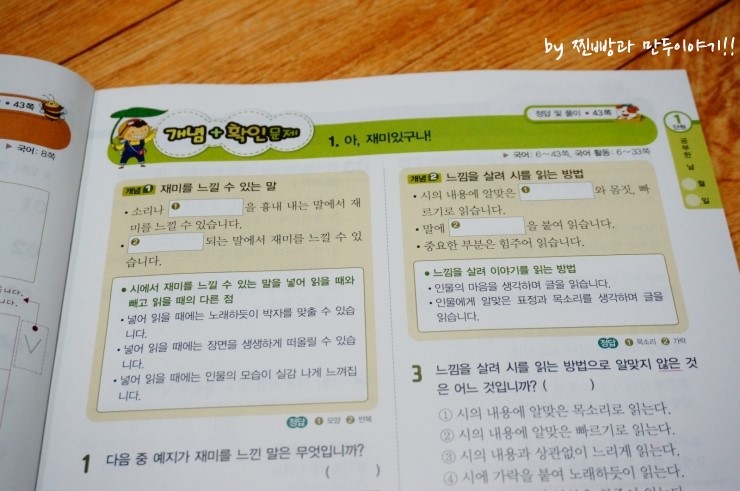 by 찐빵과 만두이야기!!
• 43쪽
▶ 국어: 8쪽
개념+확인문제
1. 아, 재미있구나!
정답 및 풀이 • 43쪽
▶ 국어: 6~43쪽, 국어 활동: 6~33쪽
1
단원
공부한 날
월
일
개념 1 재미를 느낄 수 있는 말
• 소리나 ❶ 을 흉내 내는 말에서 재
미를 느낄 수 있습니다.
• ❷ 되는 말에서 재미를 느낄 수 있
습니다.
• 시에서 재미를 느낄 수 있는 말을 넣어 읽을 때와
빼고 읽을 때의 다른 점
• 넣어 읽을 때에는 노래하듯이 박자를 맞출 수 있습
니다.
• 넣어 읽을 때에는 장면을 생생하게 떠올릴 수 있습
니다.
• 넣어 읽을 때에는 인물의 모습이 실감 나게 느껴집
니다.
정답 ❶ 모양 ❷ 반복
1 다음 중 예지가 재미를 느낀 말은 무엇입니까?
( )
개념 2 느낌을 살려 시를 읽는 방법
• 시의 내용에 알맞은 ❶ 와 몸짓, 빠
르기로 읽습니다.
• 말에 ❷ 을 붙여 읽습니다.
• 중요한 부분은 힘주어 읽습니다.
• 느낌을 살려 이야기를 읽는 방법
• 인물의 마음을 생각하며 글을 읽습니다.
• 인물에게 알맞은 표정과 목소리를 생각하며 글을
읽습니다.
정답 ❶ 목소리 ❷ 가락
3 느낌을 살려 시를 읽는 방법으로 알맞지 않은 것
은 어느 것입니까? ( )
① 시의 내용에 알맞은 목소리로 읽는다.
② 시의 내용에 알맞은 빠르기로 읽는다.
③ 시의 내용과 상관없이 느리게 읽는다.
④ 시에 가락을 붙여 노래하듯이 읽는다.